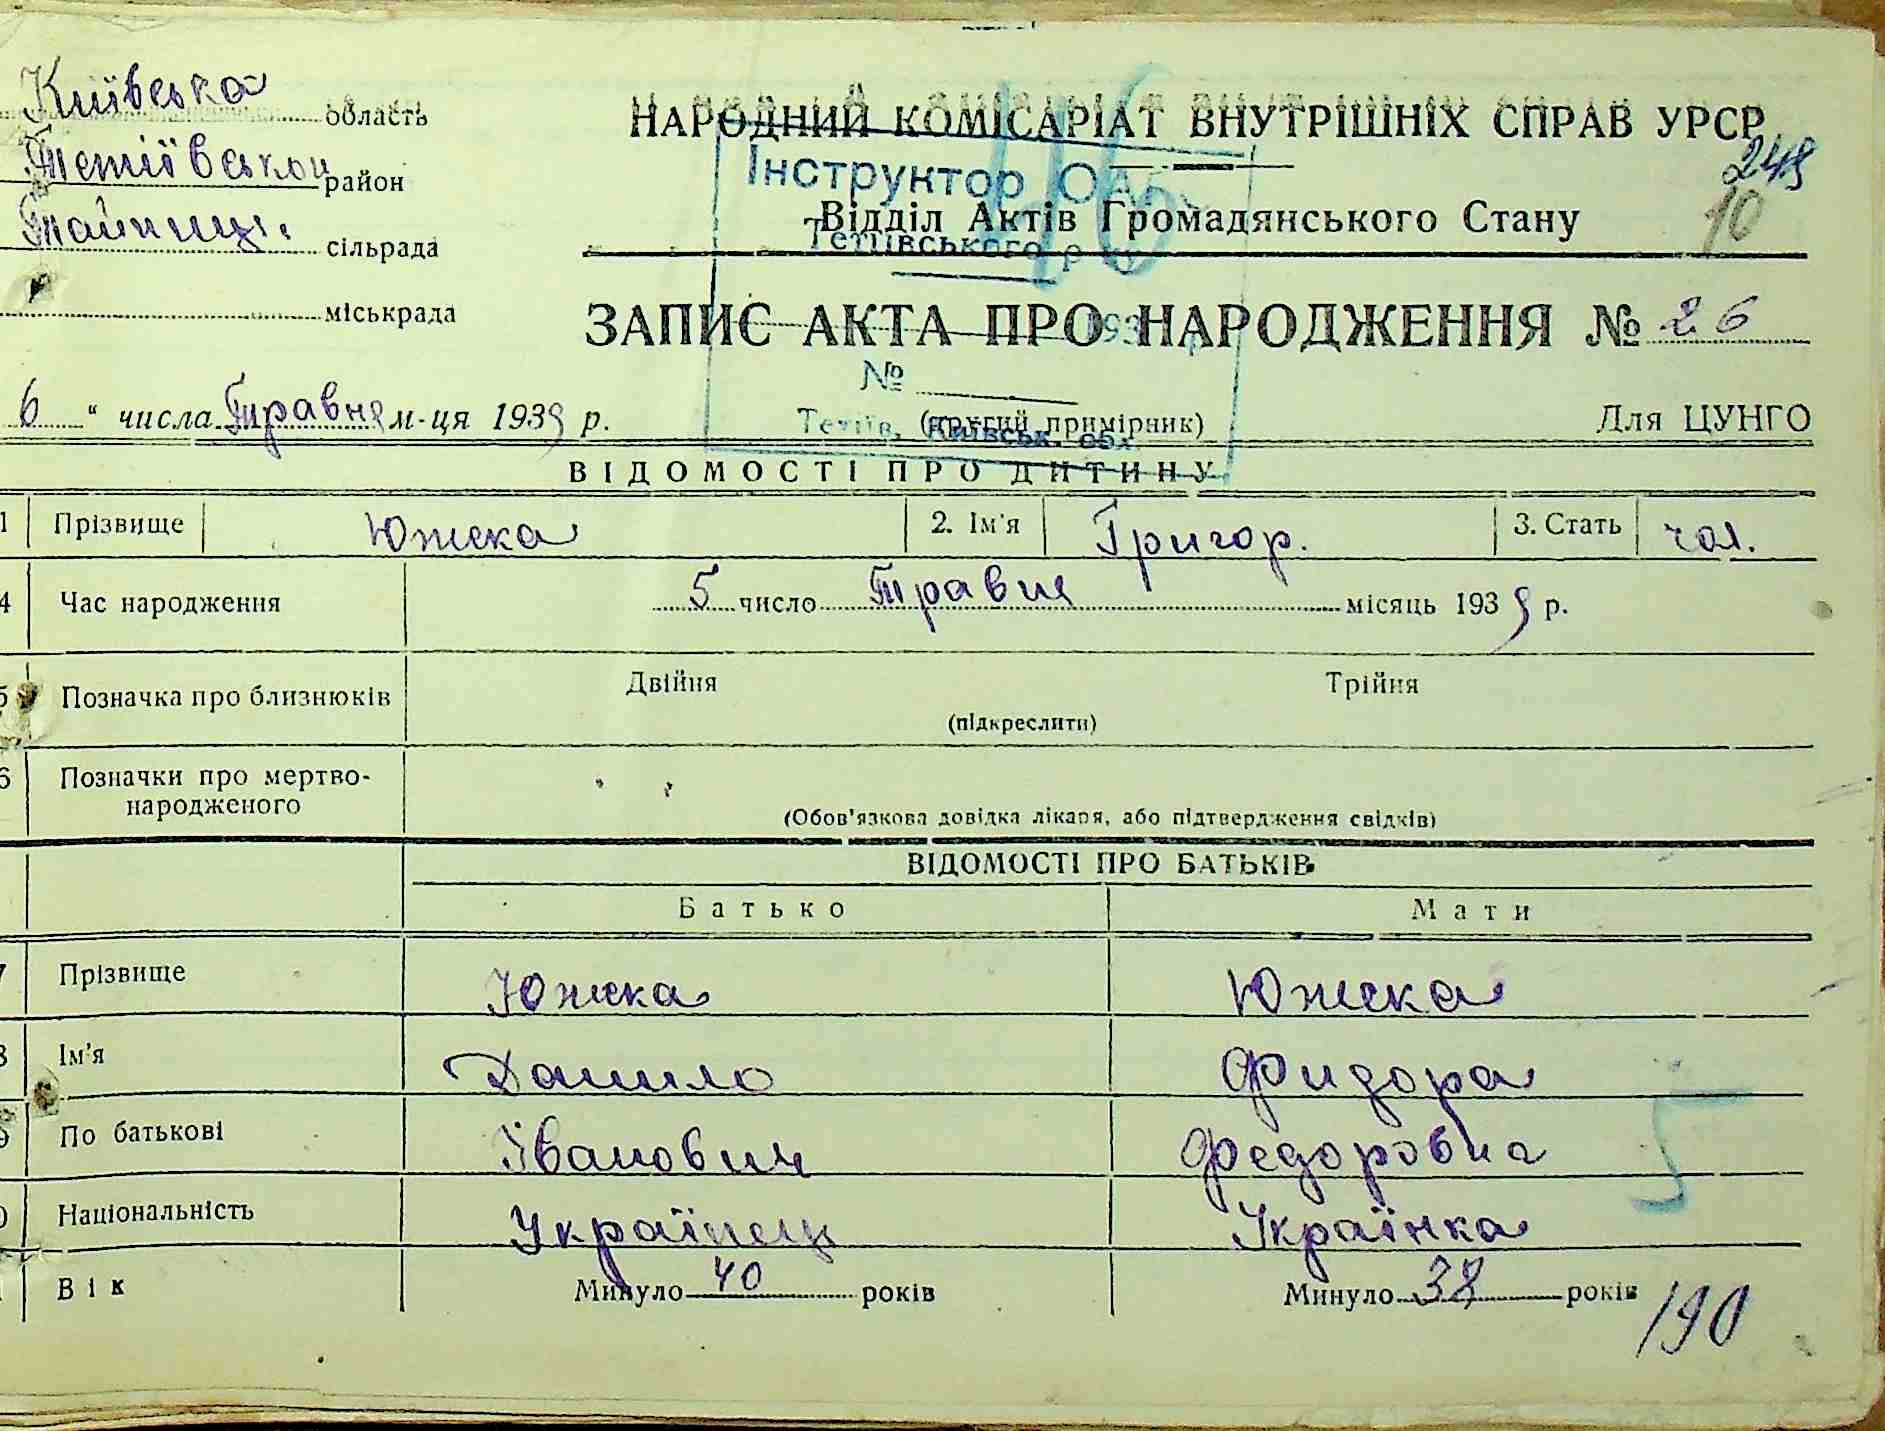 Київська область
Тетіївський район
сільрада
міськрада
НАРОДНИЙ КОМІСАРІАТ ВНУТРІШНІХ СПРАВ УРСР
249
10
46
Інструктор ОАГС
Відділ Актів Громадянського Стану
Тетіївського р-ну
ЗАПИС АКТА ПРО НАРОДЖЕННЯ № 26
193
№
6 " числа Травня м-ця 1939 р.
(другий примірник)
Для ЦУНГО
Тетіїв, Київськ. обл.
ВІДОМОСТІ ПРО ДИТИНУ
1 Прізвище Южека 2. Ім'я Григор. 3. Стать чол.
4 Час народження 5 число Травня місяць 1939 р.
5 Позначка про близнюків Двійня Трійня
(підкреслити)
6 Позначки про мертво-
народженого
(Обов'язкова довідка лікаря, або підтвердження свідків)
ВІДОМОСТІ ПРО БАТЬКІВ
Батько Мати
7 Прізвище Южека Южека
8 Ім'я Данило Фидора
9 По батькові Іванович Федоровна
0 Національність Українець Українка
5
Вік Минуло 40 років Минуло 38 років
190